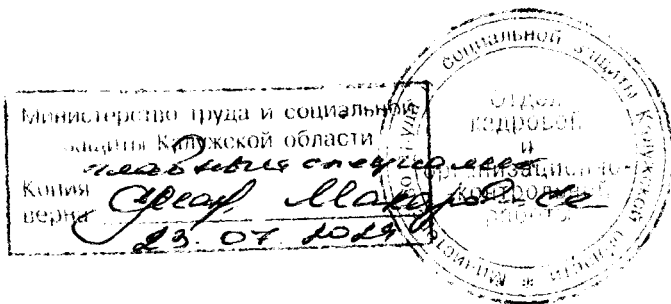 Министерство труда и социальной
защиты Калужской области
главный специалист
Копия
верна
23.07.2024
социальной защиты Калужской области * Министерство труда
Отдел
кадровой
и
организационно-
контрольной
работы